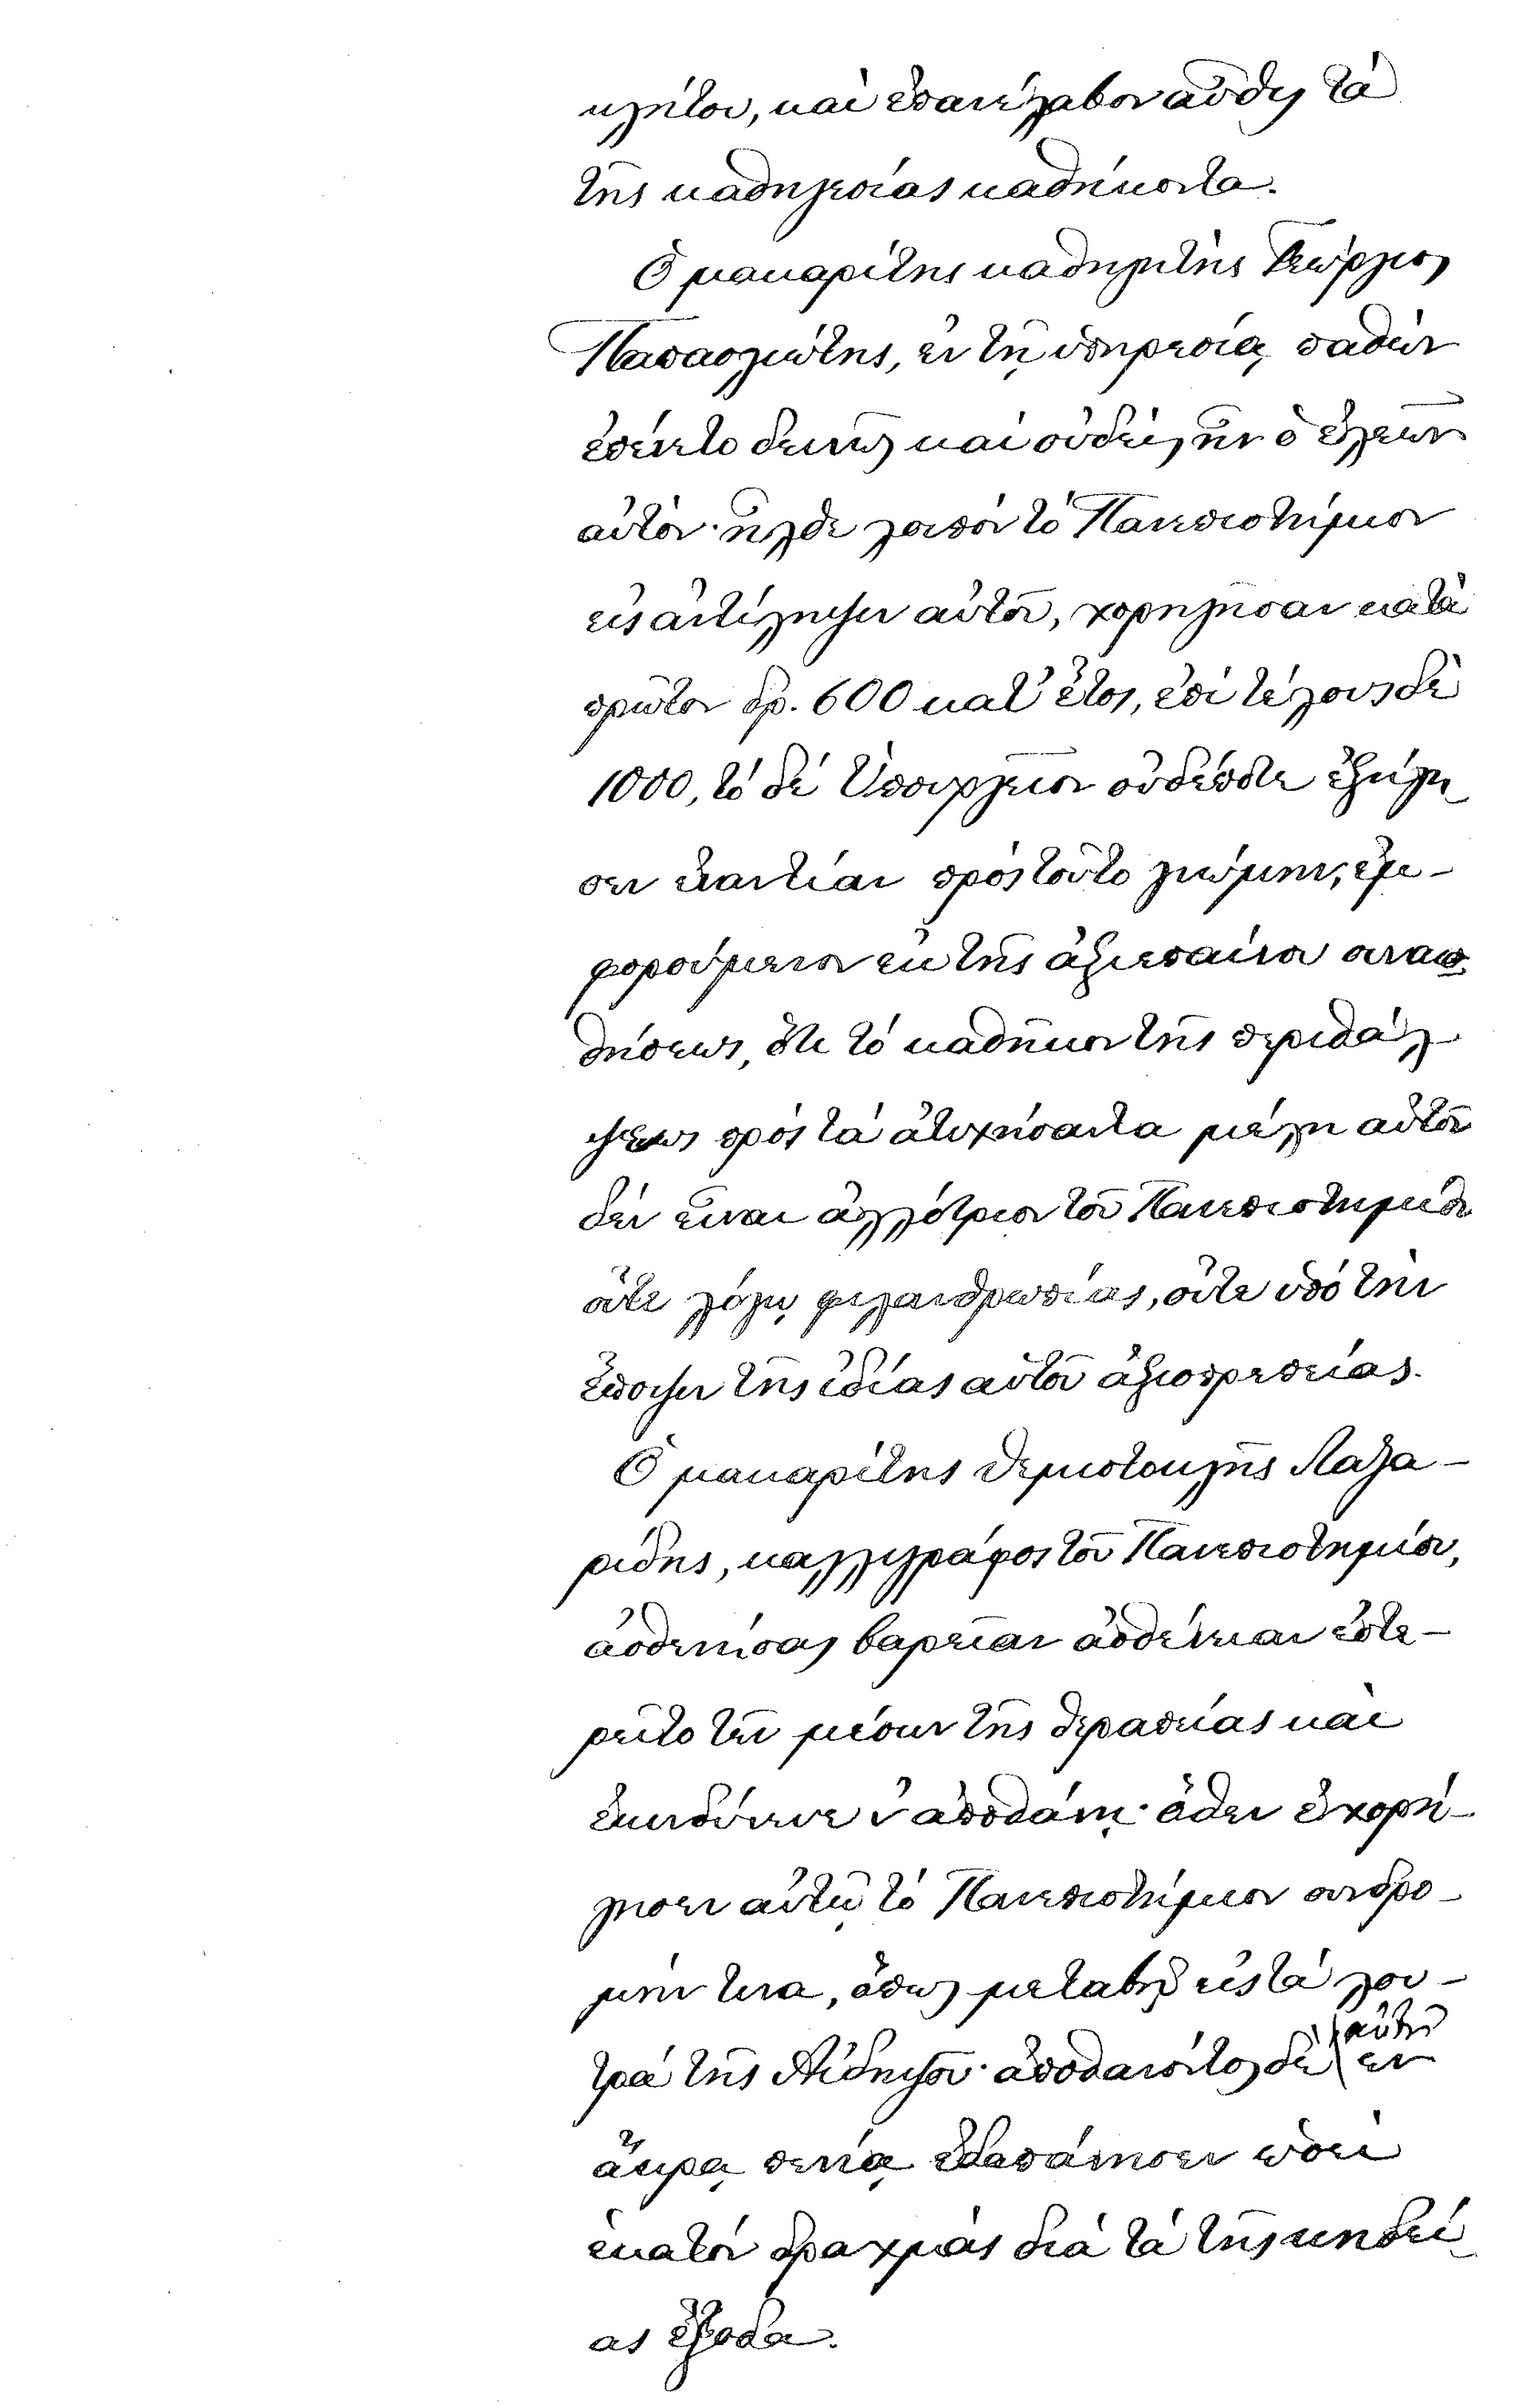 κλήτου, καὶ ἐπανέλαβον αὖθις τὰ
τῆς καθηγεσίας καθήκοντα.
Ὁ μακαρίτης καθηγητὴς Γεώργιος
Παπασλιώτης, ἐν τῇ ὑπηρεσίᾳ παθὼν
ἐπένετο δεινῶς καὶ οὐδεὶς ἦν ὁ ἐλεῶν
αὐτόν· ἦλθε λοιπὸν τὸ Πανεπιστήμιον
εἰς ἀντίληψιν αὐτοῦ, χορηγῆσαν κατὰ
πρῶτον δρ. 600 κατ' ἔτος, ἐπὶ τέλους δὲ
1000, τὸ δὲ Ὑπουργεῖον οὐδέποτε ἐξήγη_
σεν ἐναντίαν πρὸς τοῦτο γνώμην, ἐμ-
φορούμενον ἐκ τῆς ἀξιεπαίνου συναι_
σθήσεως, ὅτι τὸ καθῆκον τῆς περιθάλ-
ψεως πρὸς τὰ ἀτυχήσαντα μέλη αὐτοῦ
δὲν εἶναι ἀλλότριον τοῦ Πανεπιστημίου
οὔτε λόγῳ φιλανθρωπίας, οὔτε ὑπὸ τὴν
ἔποψιν τῆς ἰδίας αὐτοῦ ἀξιοπρεπείας.
Ὁ μακαρίτης Θεμιστοκλῆς Λαζα-
ρίδης, καλλιγράφος τοῦ Πανεπιστημίου,
ἀσθενήσας βαρεῖαν ἀσθένειαν ἐστε-
ρεῖτο τῶν μέσων τῆς θεραπείας καὶ
ἐκινδύνευε ν' ἀποθάνῃ· ὅθεν ἐχορή-
γησεν αὐτῷ τὸ Πανεπιστήμιον συνδρο-
μήν τινα, ὅπως μεταβῇ εἰς τὰ λου-
τρὰ τῆς Αἰδηψοῦ· ἀποθανόντος δὲ αὐτοῦ ἐν
ἄκρᾳ πενίᾳ ἐδαπάνησεν ὡσεὶ
ἑκατὸν δραχμὰς διὰ τὰ τῆς κηδεί_
ας ἔξοδα.